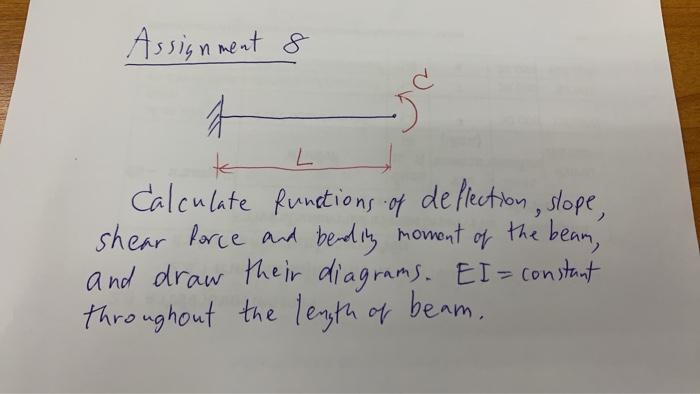 Assignment 8
C
L
Calculate functions of deflection, slope,
shear force and bending moment of the beam,
and draw their diagrams. EI = constant
throughout the length of beam.